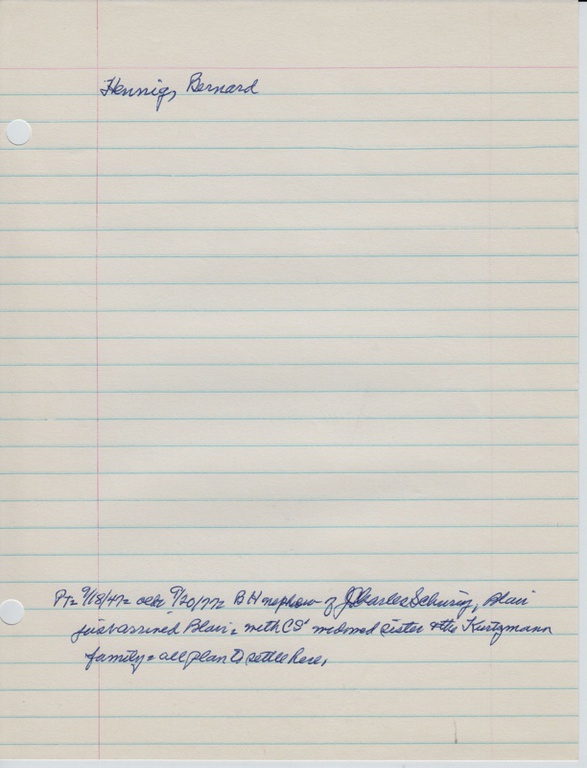 Hennig, Bernard
PT= 9/18/47= 9/20/77= BH nephew of Charles Schurig, Blair
just arrived Blair = with CS' widowed sister & the Kurtzmann
family = all plan to settle here,